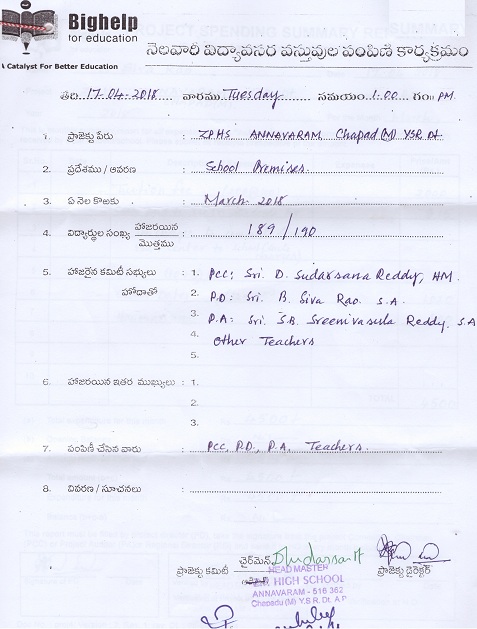 Bighelp
for education
A Catalyst For Better Education
నెలవారీ విద్యావసర వస్తువుల పంపిణీ కార్యక్రమం
తేది 17-04-2018 వారము Tuesday సమయం 1:00 గం॥ PM.
1. ప్రాజెక్టు పేరు : ZPHS ANNAVARAM Chapad (M) YSR Dt.
2. ప్రదేశము / ఆవరణ : School Premises.
3. ఏ నెల కొఱకు : March 2018
4. విద్యార్థుల సంఖ్య హాజరయిన / మొత్తము : 189/190
5. హాజరైన కమిటీ సభ్యులు : 1. PCC: Sri. D. Sudarsana Reddy, HM.
హోదాతో 2. P.D: Sri. B. Siva Rao. S.A.
3. P.A: Sri. S.B. Sreenivasula Reddy. S.A
4. Other Teachers
5.
6. హాజరయిన ఇతర ముఖ్యులు : 1.
2.
3.
7. పంపిణీ చేసిన వారు : PCC, P.D, P.A. Teachers.
8. వివరణ / సూచనలు :
ఛైర్మెన్
ప్రాజెక్టు కమిటీ ప్రాజెక్టు డైరెక్టర్
HEAD MASTER
HIGH SCHOOL
ANNAVARAM - 516 362
Chapadu (M) Y.S.R. Dt. A.P